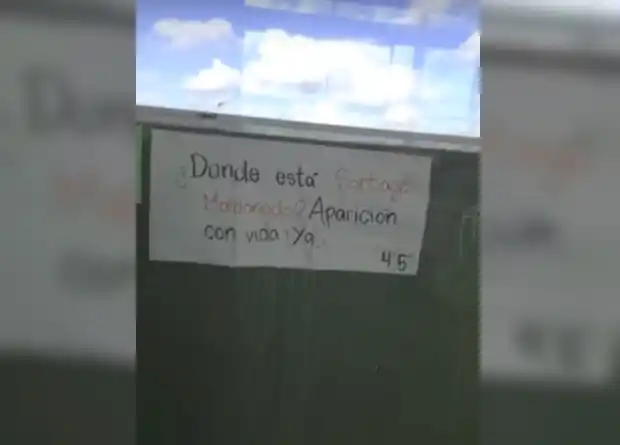 ¿Donde está Santiago
Maldonado? Aparición
con vida ¡Ya!
4°5°